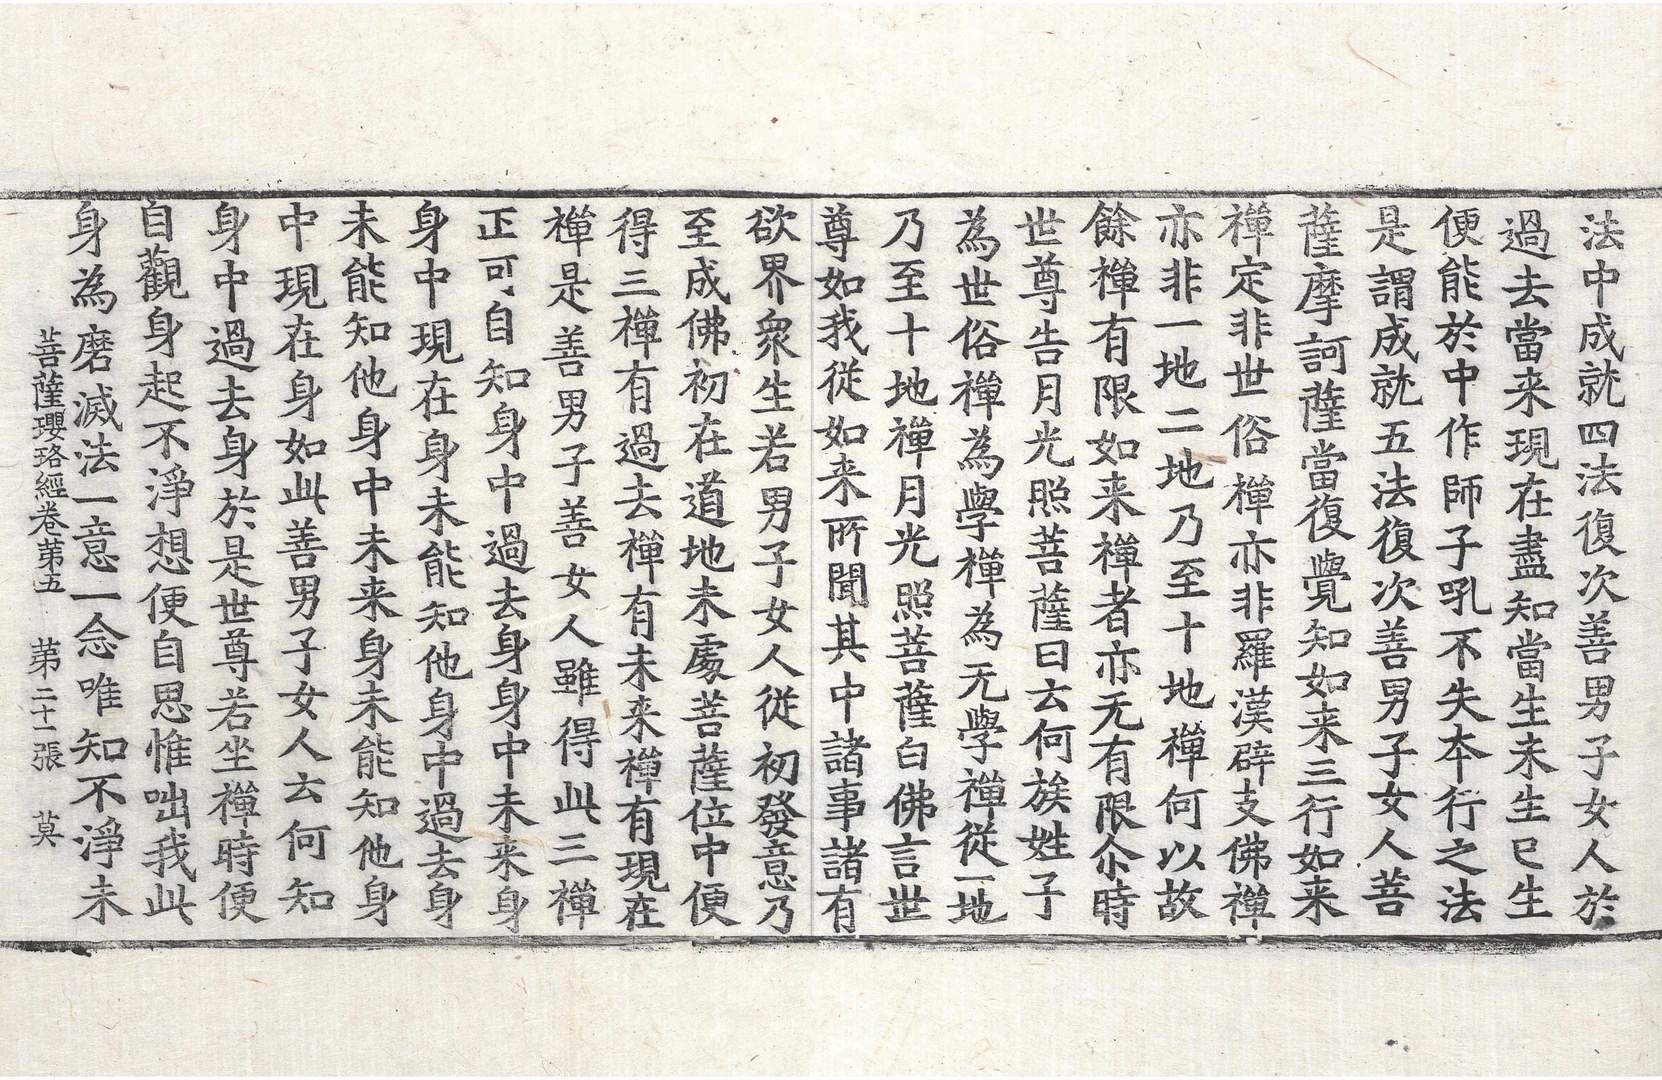 法中成就四法復次善男子女人於
過去當来現在盡知當生未生已生
便能於中作師子吼不失本行之法
是謂成就五法復次善男子女人菩
薩摩訶薩當復覺知如来三行如来
禪定非世俗禪亦非羅漢辟支佛禪
亦非一地二地乃至十地禪何以故
餘禪有限如来禪者亦无有限尒時
世尊告月光照菩薩曰云何族姓子
為世俗禪為學禪為无學禪從一地
乃至十地禪月光照菩薩白佛言世
尊如我従如来所聞其中諸事諸有
欲界衆生若男子女人從初發意乃
至成佛初在道地未處菩薩位中便
得三禪有過去禪有未来禪有現在
禪是善男子善女人雖得此三禪
正可自知身中過去身身中未来身
身中現在身未能知他身中過去身
未能知他身中未来身未能知他身
中現在身如此善男子女人云何知
身中過去身於是世尊若坐禪時便
自觀身起不淨想便自思惟咄我此
身為磨滅法一意一念唯知不淨未
菩薩瓔珞經卷第五　第二十一張　莫